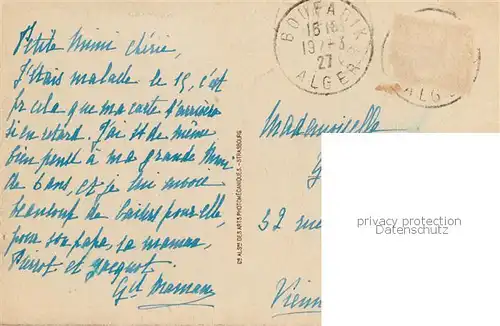 Petite Mimi chérie,
J'étais malade le 15, c'est
pr cela que ma carte t'arrivera
si en retard. J'ai tt de même
bien pensé à ma grande Mimi
de 6 ans, et je lui envoie
beaucoup de baisers pour elle,
pour son papa, sa maman,
Pierrot et Jacquot.
Gd Maman
BOUFARIK
19 - 3
27
ALGER
ALG
ALSne DES ARTS PHOTOMÉCANIQUES. - STRASBOURG
Mademoiselle
52 rue
Vienn
privacy protection
Datenschutz